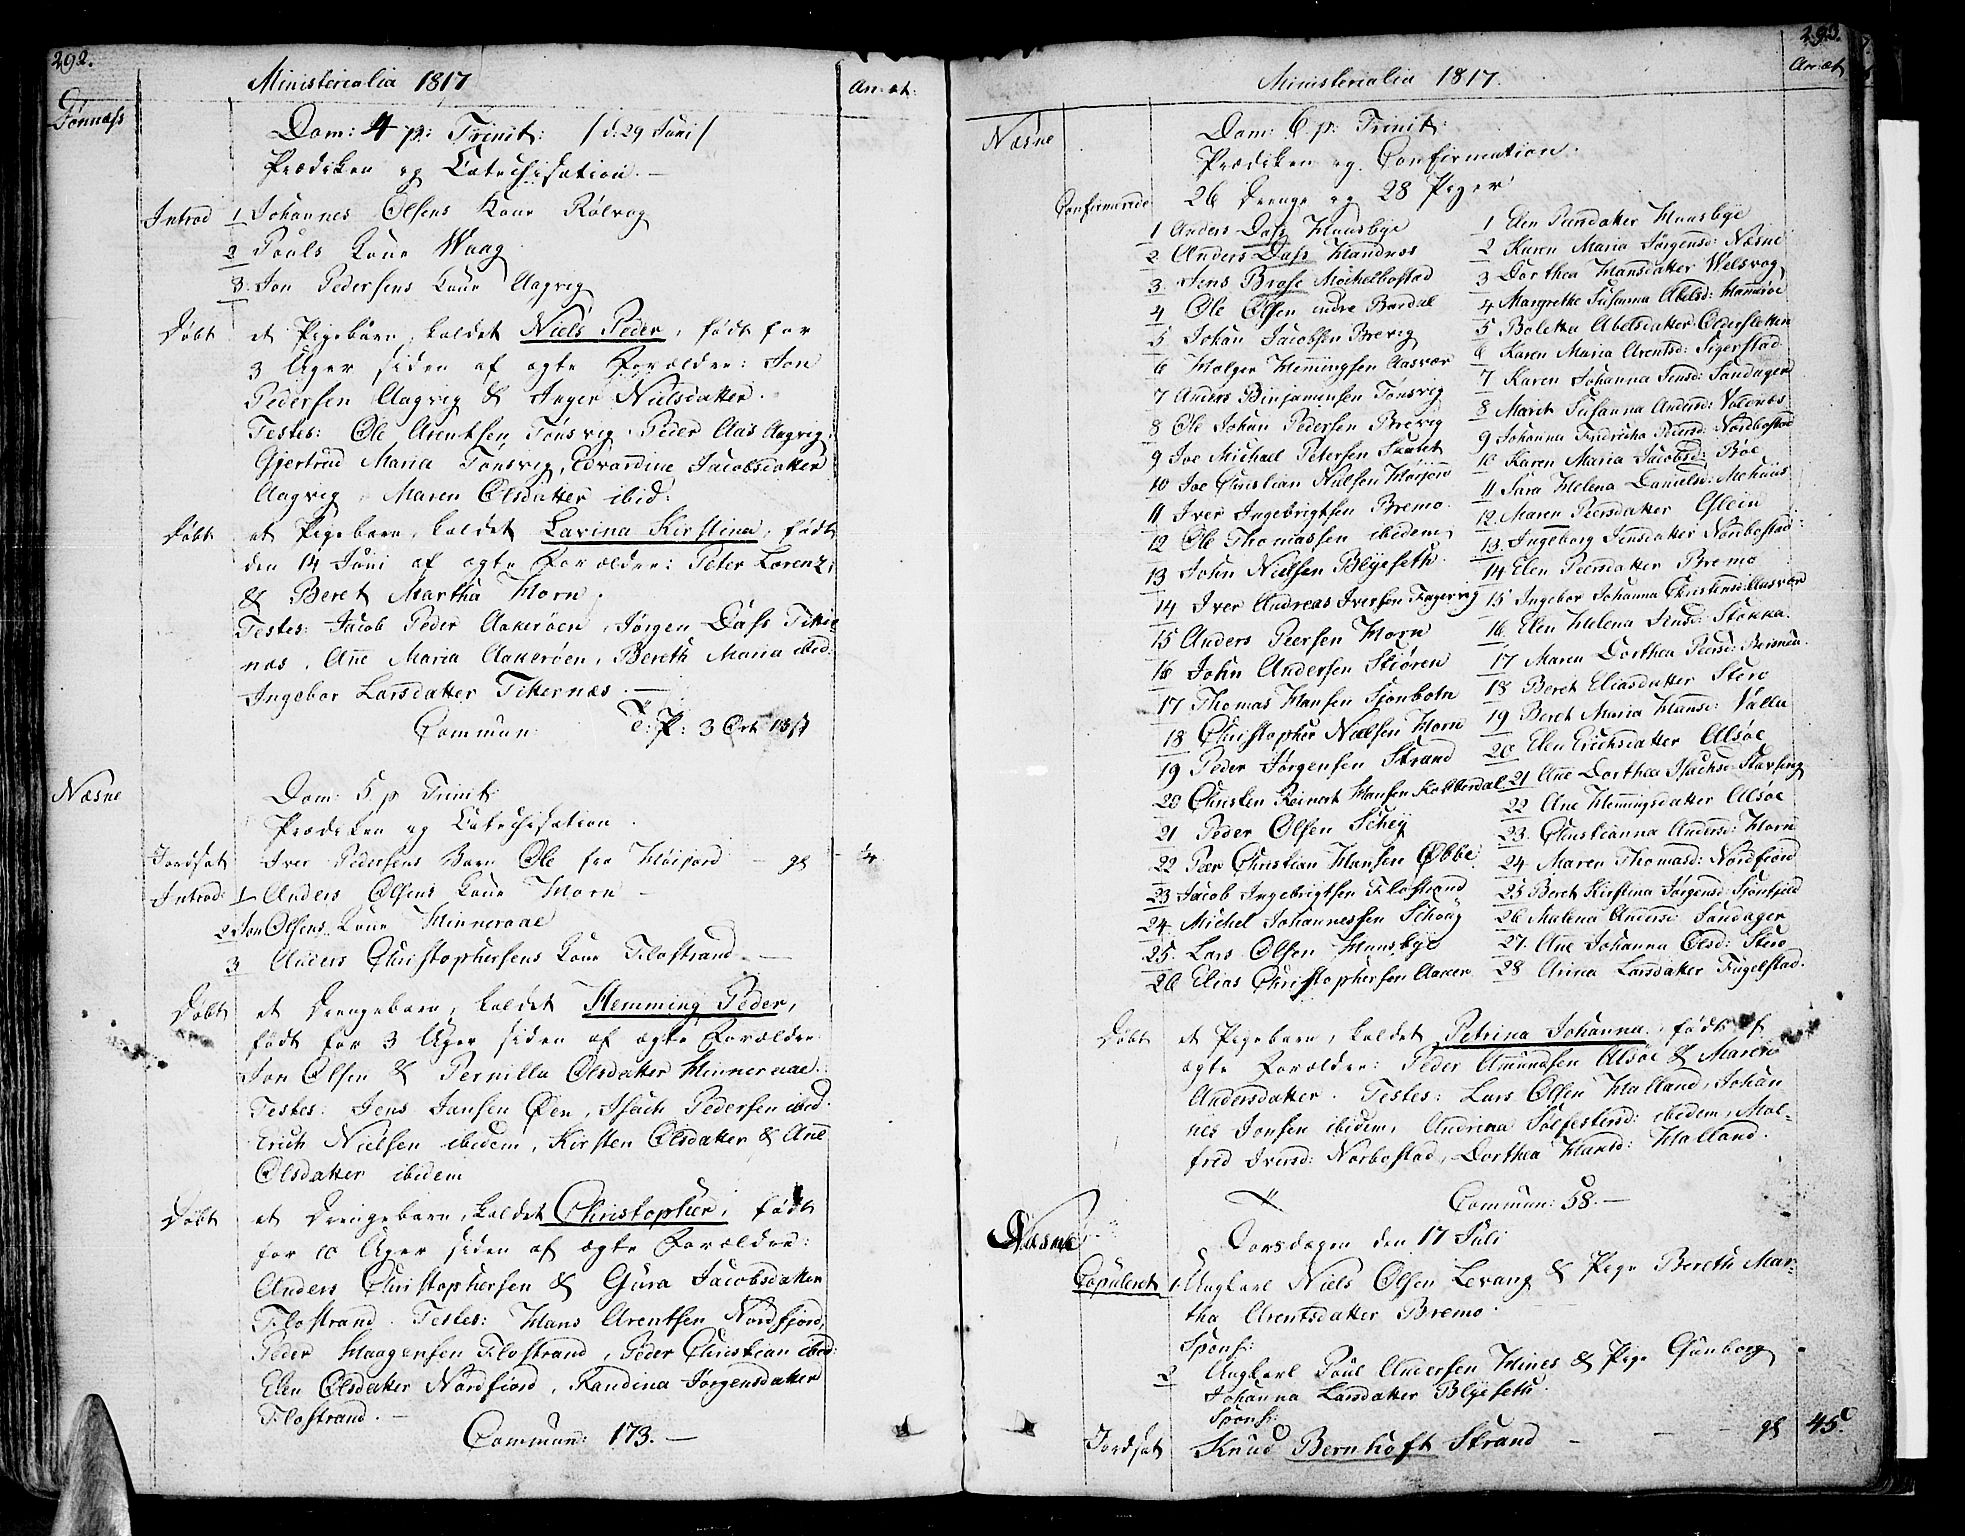 292.
Ministerialia 1817
An: æt:
Dönnæss
Dom: 4 p: Trinit: /d. 29 Juni/
Prædiken og Catechisation. —
Introd 1 Johannes Olsens Kone Rölvog
2 Pouls Kone Waag
3. Jon Pedersens Kone Aagvig
Döbt et Pigebarn, kaldet Niels Peder, födt for
3 Uger siden af ægte Forældre: Jon
Pedersen Aagvig & Inger Nielsdatter.
Testes: Ole Arentsen Tönsvig, Peder Aas Aagvig,
Gjertrud Maria Tönsvig, Edvardine Jacobsdatter
Aagvig, Maren Olsdatter ibid:
Döbt et Pigebarn, kaldet Lavina Kirstina, födt
den 14 Juni af ægte Forældre: Peter Lorentz
& Beret Martha Horn.
Testes: Jacob Peder Aakeröen, Jörgen Dass Tikie
næs, Ane Maria Aakeröen, Bereth Maria ibid.
Ingebor Larsdatter Tikernæs. —
Commun: T: P: 3 Ort 18 β
Næsne
Dom: 5 p Trinit:
Prædiken og Catechisation.
Jordsat Iver Pedersens Barn Ole fra Höijord — gl — 1/4
Introd: 1 Anders Olsens Kone Horn —
2 Jon Olsens Kone Hinneraae
3 Anders Christophersens Kone Flostrand. —
Döbt et Drengebarn, kaldet Hemming Peder,
födt for 3 Uger siden af ægte Forældre
Jon Olsen & Pernilla Olsdatter Hinneraae.
Testes: Jens Jansen Öen, Isach Pedersen ibid.
Erich Nielsen ibidem, Kirsten Olsdatter & Ane
Olsdatter ibidem
Döbt et Drengebarn, kaldet Christopher, födt
for 10 Uger siden af ægte Forældre:
Anders Christophersen & Gura Jacobsdatter
Flostrand. Testes: Hans Arentsen Nordfjord,
Peder Haagensen Flostrand, Peder Christian ibid:
Elen Olsdatter Nordfiord, Randina Jörgensdatter
Flostrand. —
Commun: 173. —
293.
Ministerialia 1817.
An: æt
Næsne
Dom: 6 p: Trinit:
Prædiken og Confirmation.
26 Drenge og 28 Piger
Confirmerede
1 Anders Dass Huusbye
2 Anders Dass Handnæs
3. Jens Brose Möchelbostad
4 Ole Olsen indre Bardal
5 Johan Jacobsen Brevig
6 Holger Hemingsen Aasvær
7 Anders Binjaminsen Tönsvig
8 Ole Johan Pedersen Brevig
9 Joe Michael Petersen
10 Joe Christian Nielsen Höijord
11 Iver Ingebrigtsen Bremo
12 Ole Thomassen ibidem
13 John Nielsen Blyeseth
14 Iver Andreas Iversen Fagervig
15 Anders Peersen Horn
16 John Andersen Stiören
17 Thomas Hansen Sjonbotn
18 Christopher Nielsen Horn
19 Peder Jörgensen Strand
20 Christen Reinert Hansen Kobberdal
21 Peder Olsen Schey
22 Peer Christian Hansen Ebbe
23 Jacob Ingebrigtsen Flostrand
24. Michel Johannessen Schoug
25. Lars Olsen Huusbye
26 Elias Christophersen Aaker
1 Elen Peersdatter Huusbye
2 Karen Maria Jörgensd: Næsne
3 Dorthea Hansdatter Welsvog
4 Margrethe Susanna Abelsd: Hammröe
5 Boletta Abelsdatter Oldersletten
6 Karen Maria Arentsd: Sigerstad
7 Karen Johanna Jensd: Sandager
8 Marit Susanna Andersd: Vatnæs
9 Johanna Fredricha Peersd: Nordbostad
10 Karen Maria Jacobsd: Böe
11 Sara Helena Danielsd:
12. Maren Peersdatter Glein
13. Ingeborg Jensdatter Norbostad:
14 Elen Peersdatter Bremo
15 Ingebor Johanna Christensd: Aasvær
16 Elen Helena Jensd: Stokka.
17 Maren Dorthea Peersd:
18 Beret Eliasdatter Storo
19 Beret Maria Hansd: Valla
20 Elen Erichsdatter Alsöe
21 Ane Dorthea Isachsd: Stavseng
22 Ane Hemmingsdatter Alsöe
23. Christianna Andersd: Horn
24. Maren Thomasd: Nordfiord
25 Beret Kirstina Jörgensd: Sjonfield
26 Malena Andersd Sandager
27. Ane Johanna Olsd: Storo
28 Anna Larsdatter Fugelstad.
Döbt et Pigebarn, kaldet Petrina Johanna, födt af
ægte Forældre: Peder Amundsen Alsöe & Maren
Andersdatter. Testes: Lars Olsen Halland, Johan
nes Jonsen ibidem, Andrina Sölfestersd: ibidem, Mal-
fred Iversd: Norbostad, Dorthea Hansd: Halland.
Commun: 58. —
Næsne
Torsdagen den 17 Juli
Copuleret 1. Ungkarl Niels Olsen Levang & Pige Bereth Mar-
tha Arentsdatter Bremo.
Spons:
2 Ungkarl Poul Andersen Hines & Pige Gunborg
Johanna Larsdatter Blyeseth.
Spons:
Jordsat Knud Bernhoft Strand — — — gl 45.